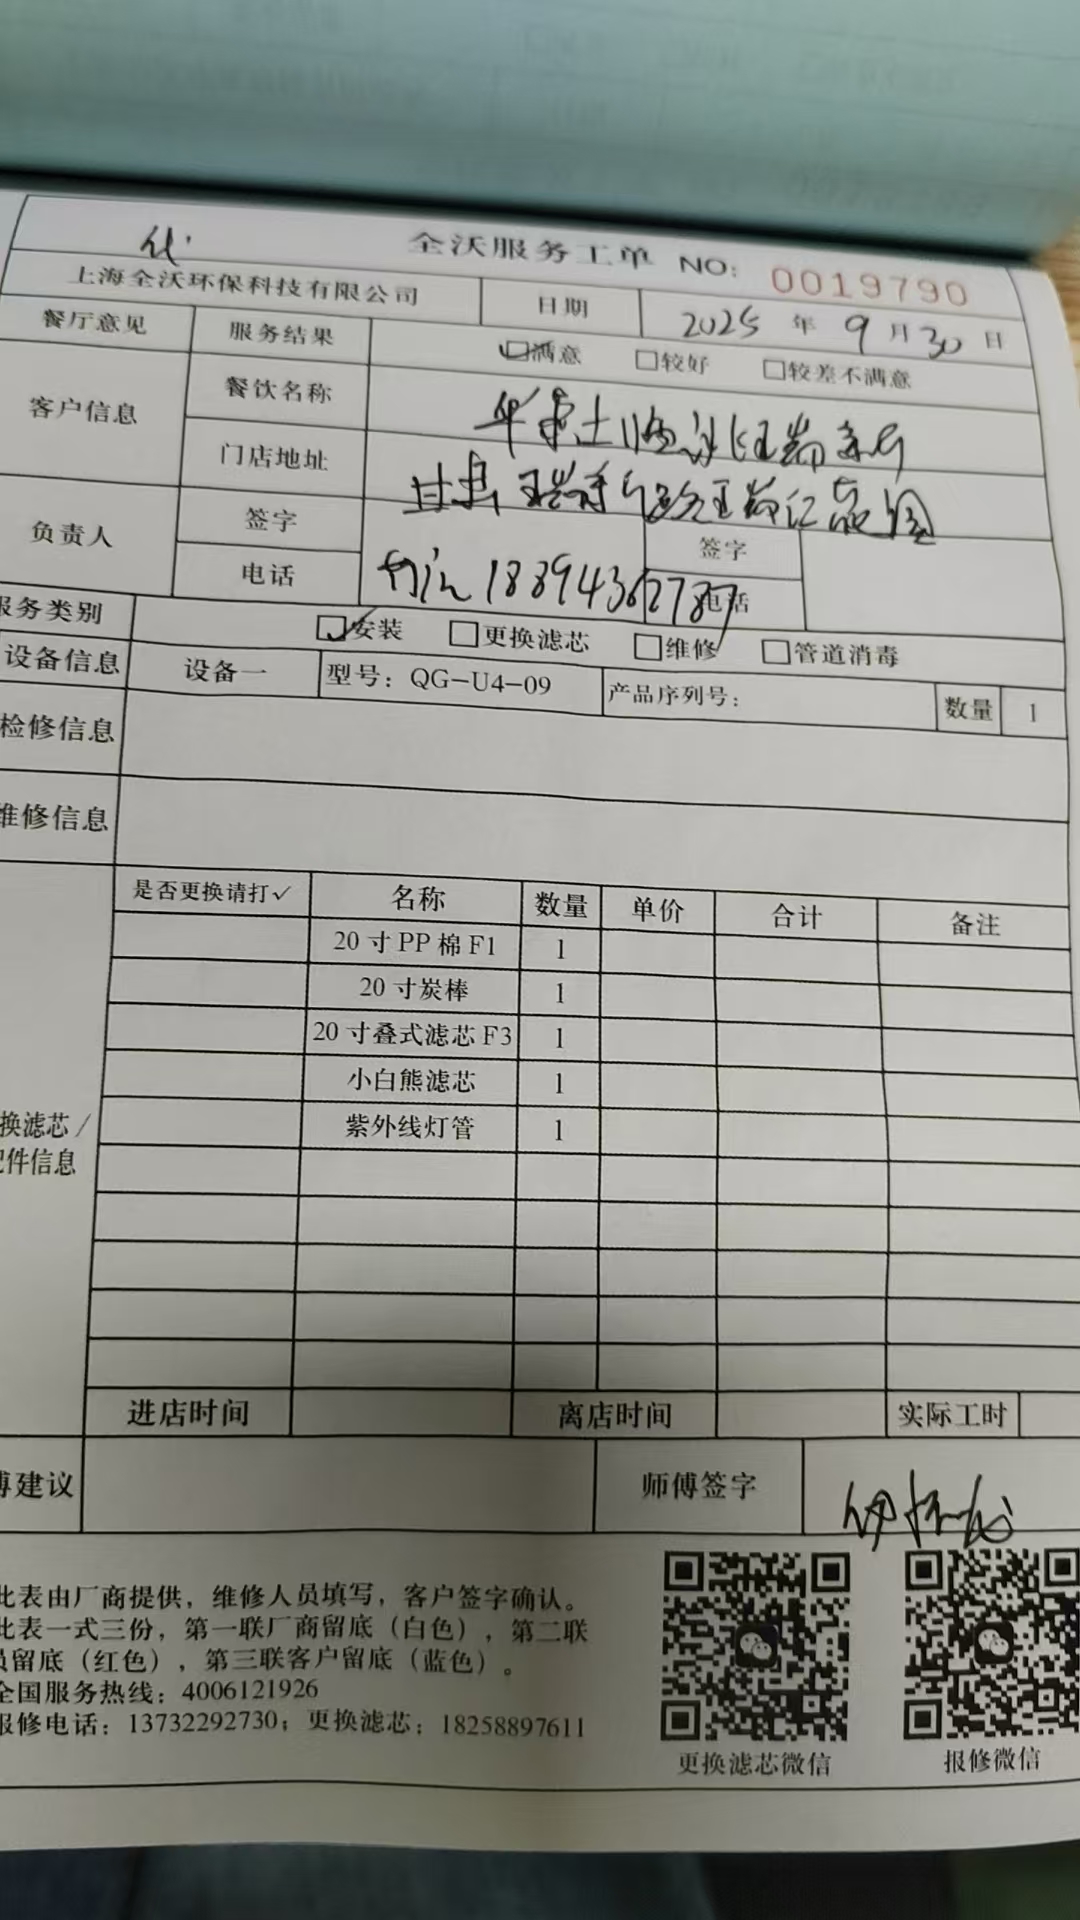 全沃服务工单 NO: 0019790
上海全沃环保科技有限公司 日期 2025 年 9 月 30 日
餐厅意见 服务结果 满意 较好 较差不满意
客户信息 餐饮名称 华莱士临
门店地址 甘
负责人 签字 签字
电话 18894362787 电话
服务类别 安装 更换滤芯 维修 管道消毒
设备信息 设备一 型号：QG-U4-09 产品序列号： 数量 1
检修信息
维修信息
是否更换请打✓ 名称 数量 单价 合计 备注
20寸PP棉F1 1
20寸炭棒 1
20寸叠式滤芯F3 1
小白熊滤芯 1
紫外线灯管 1
换滤芯/
件信息
进店时间 离店时间 实际工时
建议 师傅签字
此表由厂商提供，维修人员填写，客户签字确认。
此表一式三份，第一联厂商留底（白色），第二联
员留底（红色），第三联客户留底（蓝色）。
全国服务热线：4006121926
报修电话：13732292730；更换滤芯：18258897611
更换滤芯微信 报修微信